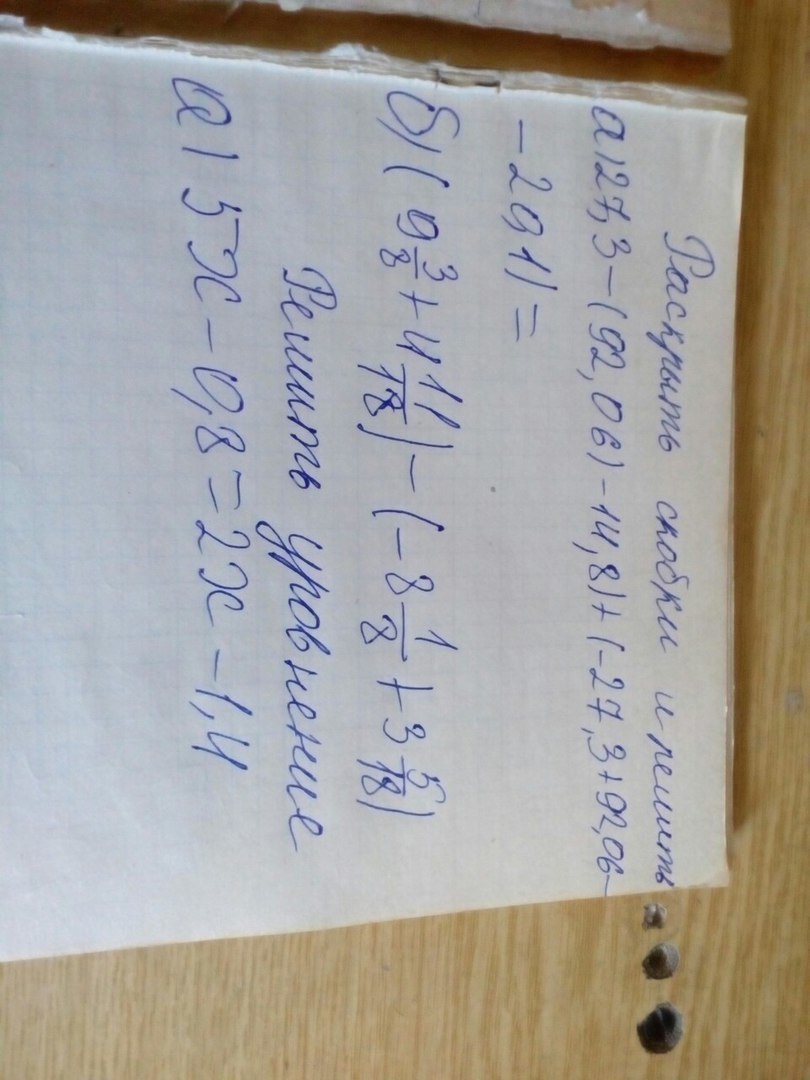 Раскрыть скобки и решить
а) 27,3-(92,06)-14,8)+(-27,3+92,06-
-29,1)=
б) (9 3/8 + 4 11/18) - (-8 1/8 + 3 5/18)
Решить уровнение
а) 5x-0,8=2x-1,4